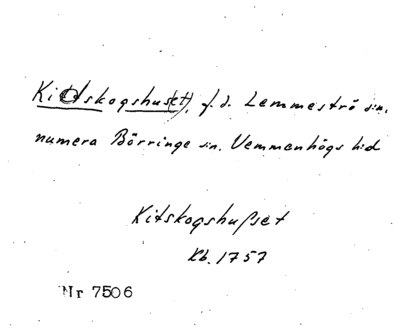 Kidskogshus(et), f.d. Lemmeströ sn.
numera Börringe sn. Vemmenhögs hd
Kitskogshusset
Kb. 1757
Nr 7506